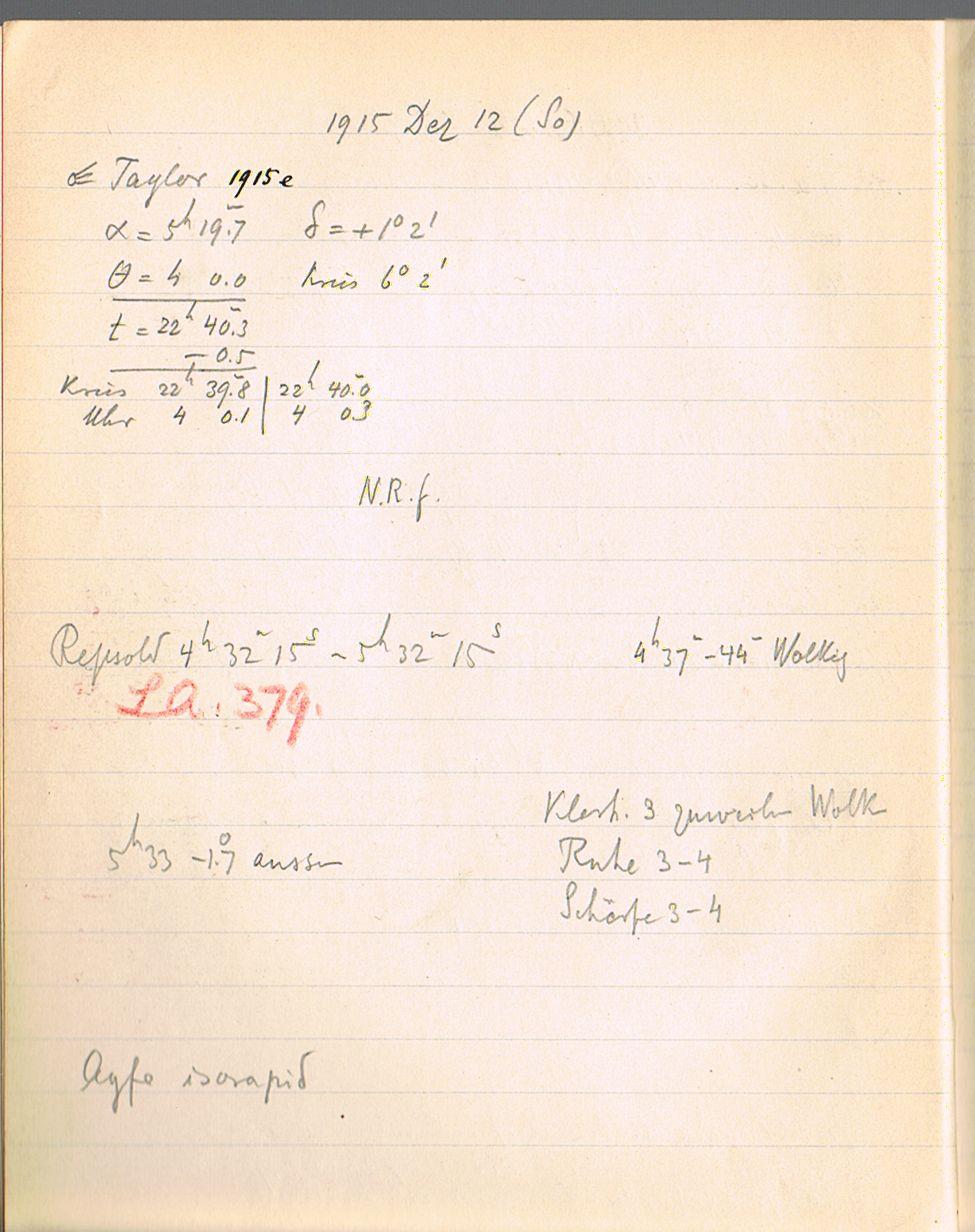 1915 Dez 12 (So)
☄ Taylor 1915e
α = 5ʰ 19.ᵐ7 δ = +1° 2'
θ = 4 0.0 Kreis 6° 2'
t = 22ʰ 40.ᵐ3
- 0.5
Kreis 22ʰ 39.ᵐ8 | 22ʰ 40.ᵐ0
Uhr 4 0.1 | 4 0.3
N.R.f.
Repsold 4ʰ 32ᵐ 15ˢ - 5ʰ 32ᵐ 15ˢ 4ʰ 37ᵐ - 44ᵐ Wolkig
LA. 379.
Klarh. 3 zuweilen Wolk
5ʰ 33 -1.°7 aussen
Ruhe 3-4
Schärfe 3-4
Agfa isorapid